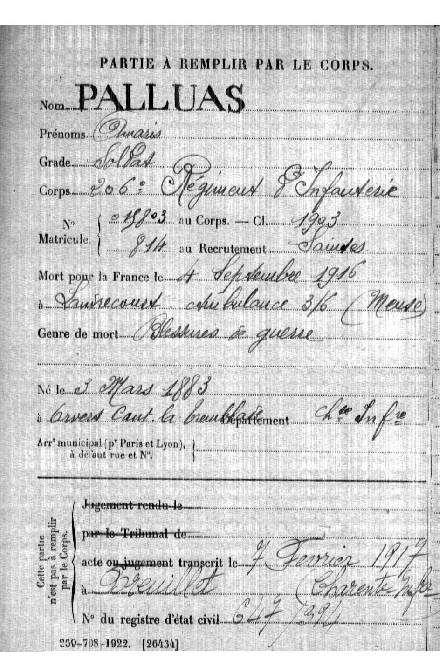 PARTIE À REMPLIR PAR LE CORPS.
Nom PALLUAS
Prénoms Omaris
Grade Soldat
Corps 206e Régiment d'Infanterie
N° Matricule { 018803 au Corps. — Cl. 1903
814 au Recrutement Saintes
Mort pour la France le 4 Septembre 1916
à Landrecourt ambulance 3/6 (Meuse)
Genre de mort Blessures de guerre
Né le 3 Mars 1883
à Arvert Cant. la tremblade Département Ch.te Inf.re
Arrt municipal (pr Paris et Lyon), à défaut rue et N°.
Cette partie n'est pas à remplir par le Corps.
Jugement rendu le
par le Tribunal de
acte ou jugement transcrit le 7 Fevrier 1917
à Breuillet (Charente Infre)
N° du registre d'état civil 647/
259-708-1922. [26434]